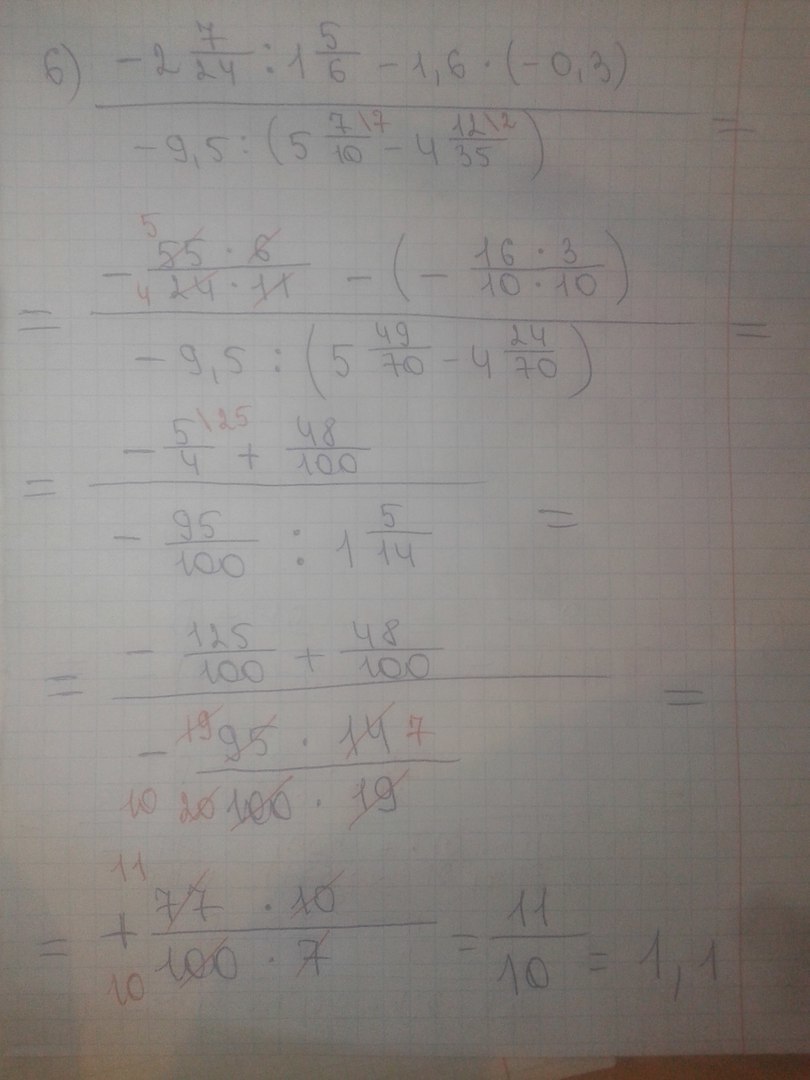 6) -2 7/24 : 1 5/6 - 1,6 · (-0,3)
-9,5 : (5 7/10 \7 - 4 12/35 \2) =
= - 5 55 · 6 / 4 24 · 11 - (- 16 · 3 / 10 · 10)
-9,5 : (5 49/70 - 4 24/70) =
= - 5/4 \25 + 48/100
- 95/100 : 1 5/14 =
= - 125/100 + 48/100
- 19 95 · 14 7 / 10 20 100 · 19 =
= + 11 77 · 10 / 10 100 · 7 = 11/10 = 1,1